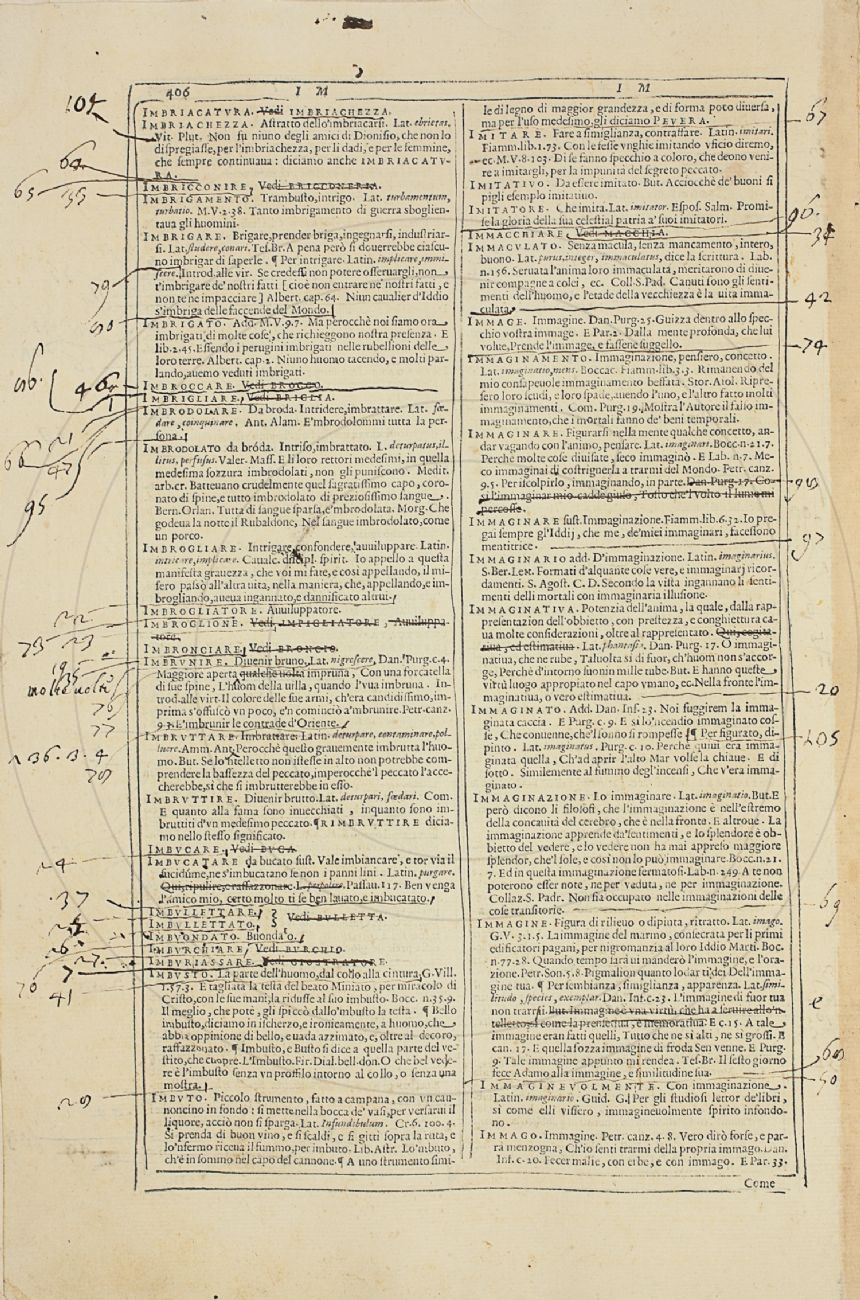 406
I M
IMBRIACATVRA. Vedi IMBRIACHEZZA.
IMBRIACHEZZA. Astratto dello'mbriacarsi. Lat. ebrietas.
Vit. Plut. Non fu niuno degli amici di Dionisio, che non lo
dispregiasse, per l'imbriachezza, per li dadi, e per le femmine,
che sempre continuaua: diciamo anche IMBRIACATV-
RA.
IMBRICCONIRE, Vedi BRICCONERIA.
IMBRIGAMENTO. Trambusto, intrigo. Lat. turbamentum,
turbatio. M.V.2.38. Tanto imbrigamento di guerra sboglien-
taua gli huomini.
IMBRIGARE. Brigare, prender briga, ingegnarsi, industriar-
si. Lat. studere, conari. Tes. Br. A pena però si douerrebbe ciascu-
no imbrigar di saperle. ¶ Per intrigare. Latin. implicare, immi-
scere. Introd. alle vir. Se credessi non potere osseruargli, non
t'imbrigare de' nostri fatti [cioè non entrare ne' nostri fatti, e
non te ne impacciare] Albert. cap. 64. Niun caualier d'Iddio
s'imbriga delle faccende del Mondo.
IMBRIGATO. Add. M.V.9.7. Ma perocchè noi siamo ora
imbrigati di molte cose, che richieggono nostra presenza. E
lib.2.45. Essendo i perugini imbrigati nelle rubellioni delle
loro terre. Albert. cap. 2. Niuno huomo tacendo, e molti par-
lando, auemo veduti imbrigati.
IMBROCCARE. Vedi BROCCO.
IMBRIGLIARE, Vedi BRIGLIA.
IMBRODOLARE. Da broda. Intridere, imbrattare. Lat. fœ-
dare, coinquinare. Ant. Alam. E'mbrodolommi tutta la per-
sona.
IMBRODOLATO da bróda. Intriso, imbrattato. L. deturpatus, il-
litus, perfusus. Valer. Mass. E il loro rettori medesimi, in quella
medesima sozzura imbrodolati, non gli puniscono. Medit.
arb. cr. Batteuano crudelmente quel sagratissimo capo, coro-
nato di spine, e tutto imbrodolato di preziosissimo sangue.
Bern. Orlan. Tutta di sangue sparsa, e'mbrodolata. Morg. Che
godeua la notte il Rubaldone, Nel sangue imbrodolato, come
un porco.
IMBROGLIARE. Intrigare, confondere, auuiluppare. Latin.
intricare, implicare. Caualc. discipl. spirit. Io appello a questa
manifesta grauezza, che voi mi fate, e così appellando, il mi-
sero passò all'altra uita, nella maniera, che, appellando, e im-
brogliando, aueua ingannato, e dannificato altrui.
IMBROGLIATORE. Auuiluppatore.
IMBROGLIONE. Vedi IMPIGLIATORE, Auuiluppa-
tore.
IMBRONCIARE, Vedi BRONCIO.
IMBRVNIRE. Diuenir bruno, Lat. nigrescere, Dan. Purg. c.4.
Maggiore aperta qualche uolta impruna, Con una forcatella
di sue spine, L'huom della uilla, quando l'vua imbruna. In-
trod. alle vir. Il colore delle sue armi, ch'era candidissimo, im-
prima s'offuscò vn poco, e'n cominciò a'mbrunire. Petr. canz.
9.3. E'mbrunir le contrade d'Oriente.
IMBRVTTARE. Imbrattare. Latin. deturpare, contaminare, pol-
luere. Amm. Ant. Perocchè questo grauemente imbrutta l'huo-
mo. But. Se lo'ntelletto non istesse in alto non potrebbe com-
prendere la bassezza del peccato, imperocchè'l peccato l'acce-
cherebbe, sì che si imbrutterebbe in esso.
IMBRVTTIRE. Diuenir brutto. Lat. deturpari, fœdari. Com.
E quanto alla fama sono inuecchiati, inquanto sono im-
bruttiti d'vn medesimo peccato. ¶ RIMBRVTTIRE dicia-
mo nello stesso significato.
IMBVCARE, Vedi BVCA.
IMBVCATARE da bucato sust. Vale imbiancare, e tor via il
sucidume, ne s'imbucatano se non i panni lini. Latin. purgare.
Qui, ripulire, e raffazzonare. L. perpolire. Passau. 117. Ben venga
l'amico mio, certo molto ti se ben lauato, e imbucatato.
IMBVLLETTARE, Vedi BVLLETTA.
IMBVLLETTATO,
IMBVONDATO. Buondato.
IMBVRCHIARE, Vedi BVRCHIO.
IMBVRIASSARE. Vedi GIOSTRATORE.
IMBVSTO. La parte dell'huomo, dal collo alla cintura, G. Vill.
1.57.3. E tagliata la testa del beato Miniato, per miracolo di
Cristo, con le sue mani, la ridusse al suo imbusto. Bocc. n.35.9.
Il meglio, che potè, gli spiccò dallo'mbusto la testa. ¶ Bello
imbusto, diciamo in ischerzo, e ironicamente, a huomo, che
abbia oppinione di bello, e uada azzimato, e, oltre al decoro,
raffazzonato. ¶ Imbusto, e Busto si dice a quella parte del ve-
stito, che cuopre. L'Imbusto. Fir. Dial. bell. don. O che bel vede-
re è l'imbusto senza vn proffilo intorno al collo, o senza una
mostra.
IMBVTO. Piccolo strumento, fatto a campana, con vn can-
noncino in fondo: si mette nella bocca de' vasi, per versarui il
liquore, acciò non si sparga. Lat. Infundibulum. Cr.6. 100.4.
Si prenda di buon vino, e si scaldi, e si gitti sopra la ruta, e
lo'nfermo riceua il fummo, per imbuto. Lib. Astr. Lo'mbuto,
ch'è in sommo nel capo del cannone. ¶ A uno strumento simi-
I M
le di legno di maggior grandezza, e di forma poco diuersa,
ma per l'uso medesimo, gli diciamo PEVERA.
IMITARE. Fare a simiglianza, contraffare. Latin. imitari.
Fiamm. lib. 1.73. Con le fesse vnghie imitando vficio diremo,
ec. M.V.8.103. Di se fanno specchio a coloro, che deono veni-
re a imitargli, per la impunità del segreto peccato.
IMITATIVO. Da essere imitato. But. Acciocchè de' buoni si
pigli esemplo imitatiuo.
IMITATORE. Che imita. Lat. imitator. Espos. Salm. Promi-
se la gloria della sua celestial patria a' suoi imitatori.
IMMACCHIARE, Vedi MACCHIA.
IMMACVLATO. Senza macula, senza mancamento, intero,
buono. Lat. purus, integer, immaculatus, dice la scrittura. Lab.
n.156. Seruata l'anima loro immaculata, meritarono di diue-
nir compagne a colei, ec. Coll. S. Pad. Canuti sono gli senti-
menti dell'huomo, e l'etade della vecchiezza è la uita imma-
culata.
IMMAGE. Immagine. Dan. Purg. 25. Guizza dentro allo spec-
chio vostra immage. E Par. 2. Dalla mente profonda, che lui
volue, Prende l'immage, e fassene suggello.
IMMAGINAMENTO. Immaginazione, pensiero, concetto.
Lat. imaginatio, mens. Boccac. Fiamm. lib. 3.3. Rimanendo del
mio consapeuole immaginamento beffata. Stor. Aiol. Ripre-
sero loro scudi, e loro spade, auendo l'uno, e l'altro fatto molti
immaginamenti. Com. Purg. 19. Mostra l'Autore il falso im-
maginamento, che i mortali fanno de' beni temporali.
IMMAGINARE. Figurarsi nella mente qualche concetto, an-
dar vagando con l'animo, pensare. Lat. imaginari. Bocc. n.21.7.
Perche molte cose diuisate, seco immaginò. E Lab. n.7. Me-
co immaginai di costrignerla a trarmi del Mondo. Petr. canz.
9.5. Per iscolpirlo, immaginando, in parte. Dan. Purg. 17. Co-
sì l'immaginar mio cadde giuso, Tosto che'l volto il lume mi
percosse.
IMMAGINARE sust. Immaginazione. Fiamm. lib. 6.32. Io pre-
gai sempre gl'Iddij, che me, de'miei immaginari, facessono
mentitrice.
IMMAGINARIO add. D'immaginazione. Latin. imaginarius.
S. Ber. Let. Formati d'alquante cose vere, e immaginarj ricor-
damenti. S. Agost. C. D. Secondo la vista ingannano li senti-
menti delli mortali con immaginaria illusione.
IMMAGINATIVA. Potenzia dell'anima, la quale, dalla rap-
presentazion dell'obbietto, con prestezza, e conghiettura ca-
ua molte considerazioni, oltre al rappresentato. Qui, cogita-
tiua, ed estimatiua. Lat. phantasia. Dan. Purg. 17. O immagi-
natiua, che ne rube, Taluolta sì di fuor, ch'huom non s'accor-
ge, Perchè d'intorno suonin mille tube. But. E hanno queste
virtù luogo appropiato nel capo vmano, ec. Nella fronte l'im-
maginatiua, o vero estimatiua.
IMMAGINATO. Add. Dan. Inf. 23. Noi fuggirem la imma-
ginata caccia. E Purg. c. 9. E sì lo'ncendio immaginato cos-
se, Che conuenne, che'l sonno si rompesse. ¶ Per figurato, di-
pinto. Lat. imaginatus. Purg. c. 10. Perche quiui era imma-
ginata quella, Ch'ad aprir l'alto Mar volse la chiaue. E di
sotto. Similemente al fummo degl'incensi, Che v'era imma-
ginato.
IMMAGINAZIONE. Lo immaginare. Lat. imaginatio. But. E
però dicono li filosofi, che l'immaginazione è nell'estremo
della concauità del cerebro, che è nella fronte. E altroue. La
immaginazione apprende da'sentimenti, e lo splendore è ob-
bietto del vedere, e lo vedere non ha mai appreso maggiore
splendor, che'l sole, e così non lo può immaginare. Bocc. n.21.
7. Ed in questa immaginazione fermatosi. Lab. n.249. A te non
poterono esser note, ne per veduta, ne per immaginazione.
Collaz. S. Padr. Non sia occupato nelle immaginazioni delle
cose transitorie.
IMMAGINE. Figura di rilieuo o dipinta, ritratto. Lat. imago.
G.V. 3.1.5. La immagine del marmo, consecrata per li primi
edificatori pagani, per nigromanzia al loro Iddio Marti. Boc.
n.77.28. Quando tempo sarà ui manderò l'immagine, e l'ora-
zione. Petr. Son. 5.8. Pigmalion quanto lodar ti dei Dell'imma-
gine tua. ¶ Per sembianza, simiglianza, apparenza. Lat. simi-
litudo, species, exemplar. Dan. Inf. c.23. L'immagine di fuor tua
non trarrei. But. Immagine è vna virtù, che ha a seruire allo'n-
telletto, come la prensiua, e memoratiua: E c.15. A tale
immagine eran fatti quelli, Tutto che ne sì alti, ne sì grossi. E
can. 17. E quella sozza immagine di froda Sen venne. E Purg.
9. Tale immagine appunto mi rendea. Tes. Br. Il sesto giorno
fece Adamo alla immagine, e similitudine sua.
IMMAGINEVOLMENTE. Con immaginazione.
Latin. imaginario. Guid. G. Per gli studiosi lettor de'libri,
sì come elli vissero, immagineuolmente spirito infondo-
no.
IMMAGO. Immagine. Petr. canz. 4.8. Vero dirò forse, e par-
rà menzogna, Ch'io senti trarmi della propria immago. Dan.
Inf. c. 20. Fecer malie, con erbe, e con immago. E Par. 33.
Come
104
64
65
35
79
46
21
66
47
95
22
73
23
molte uolti
76
77
136.3.4
79
24
37
26
7
76
41
29
67
96.
34
42
74
93
97
20
105
69
e
60
50